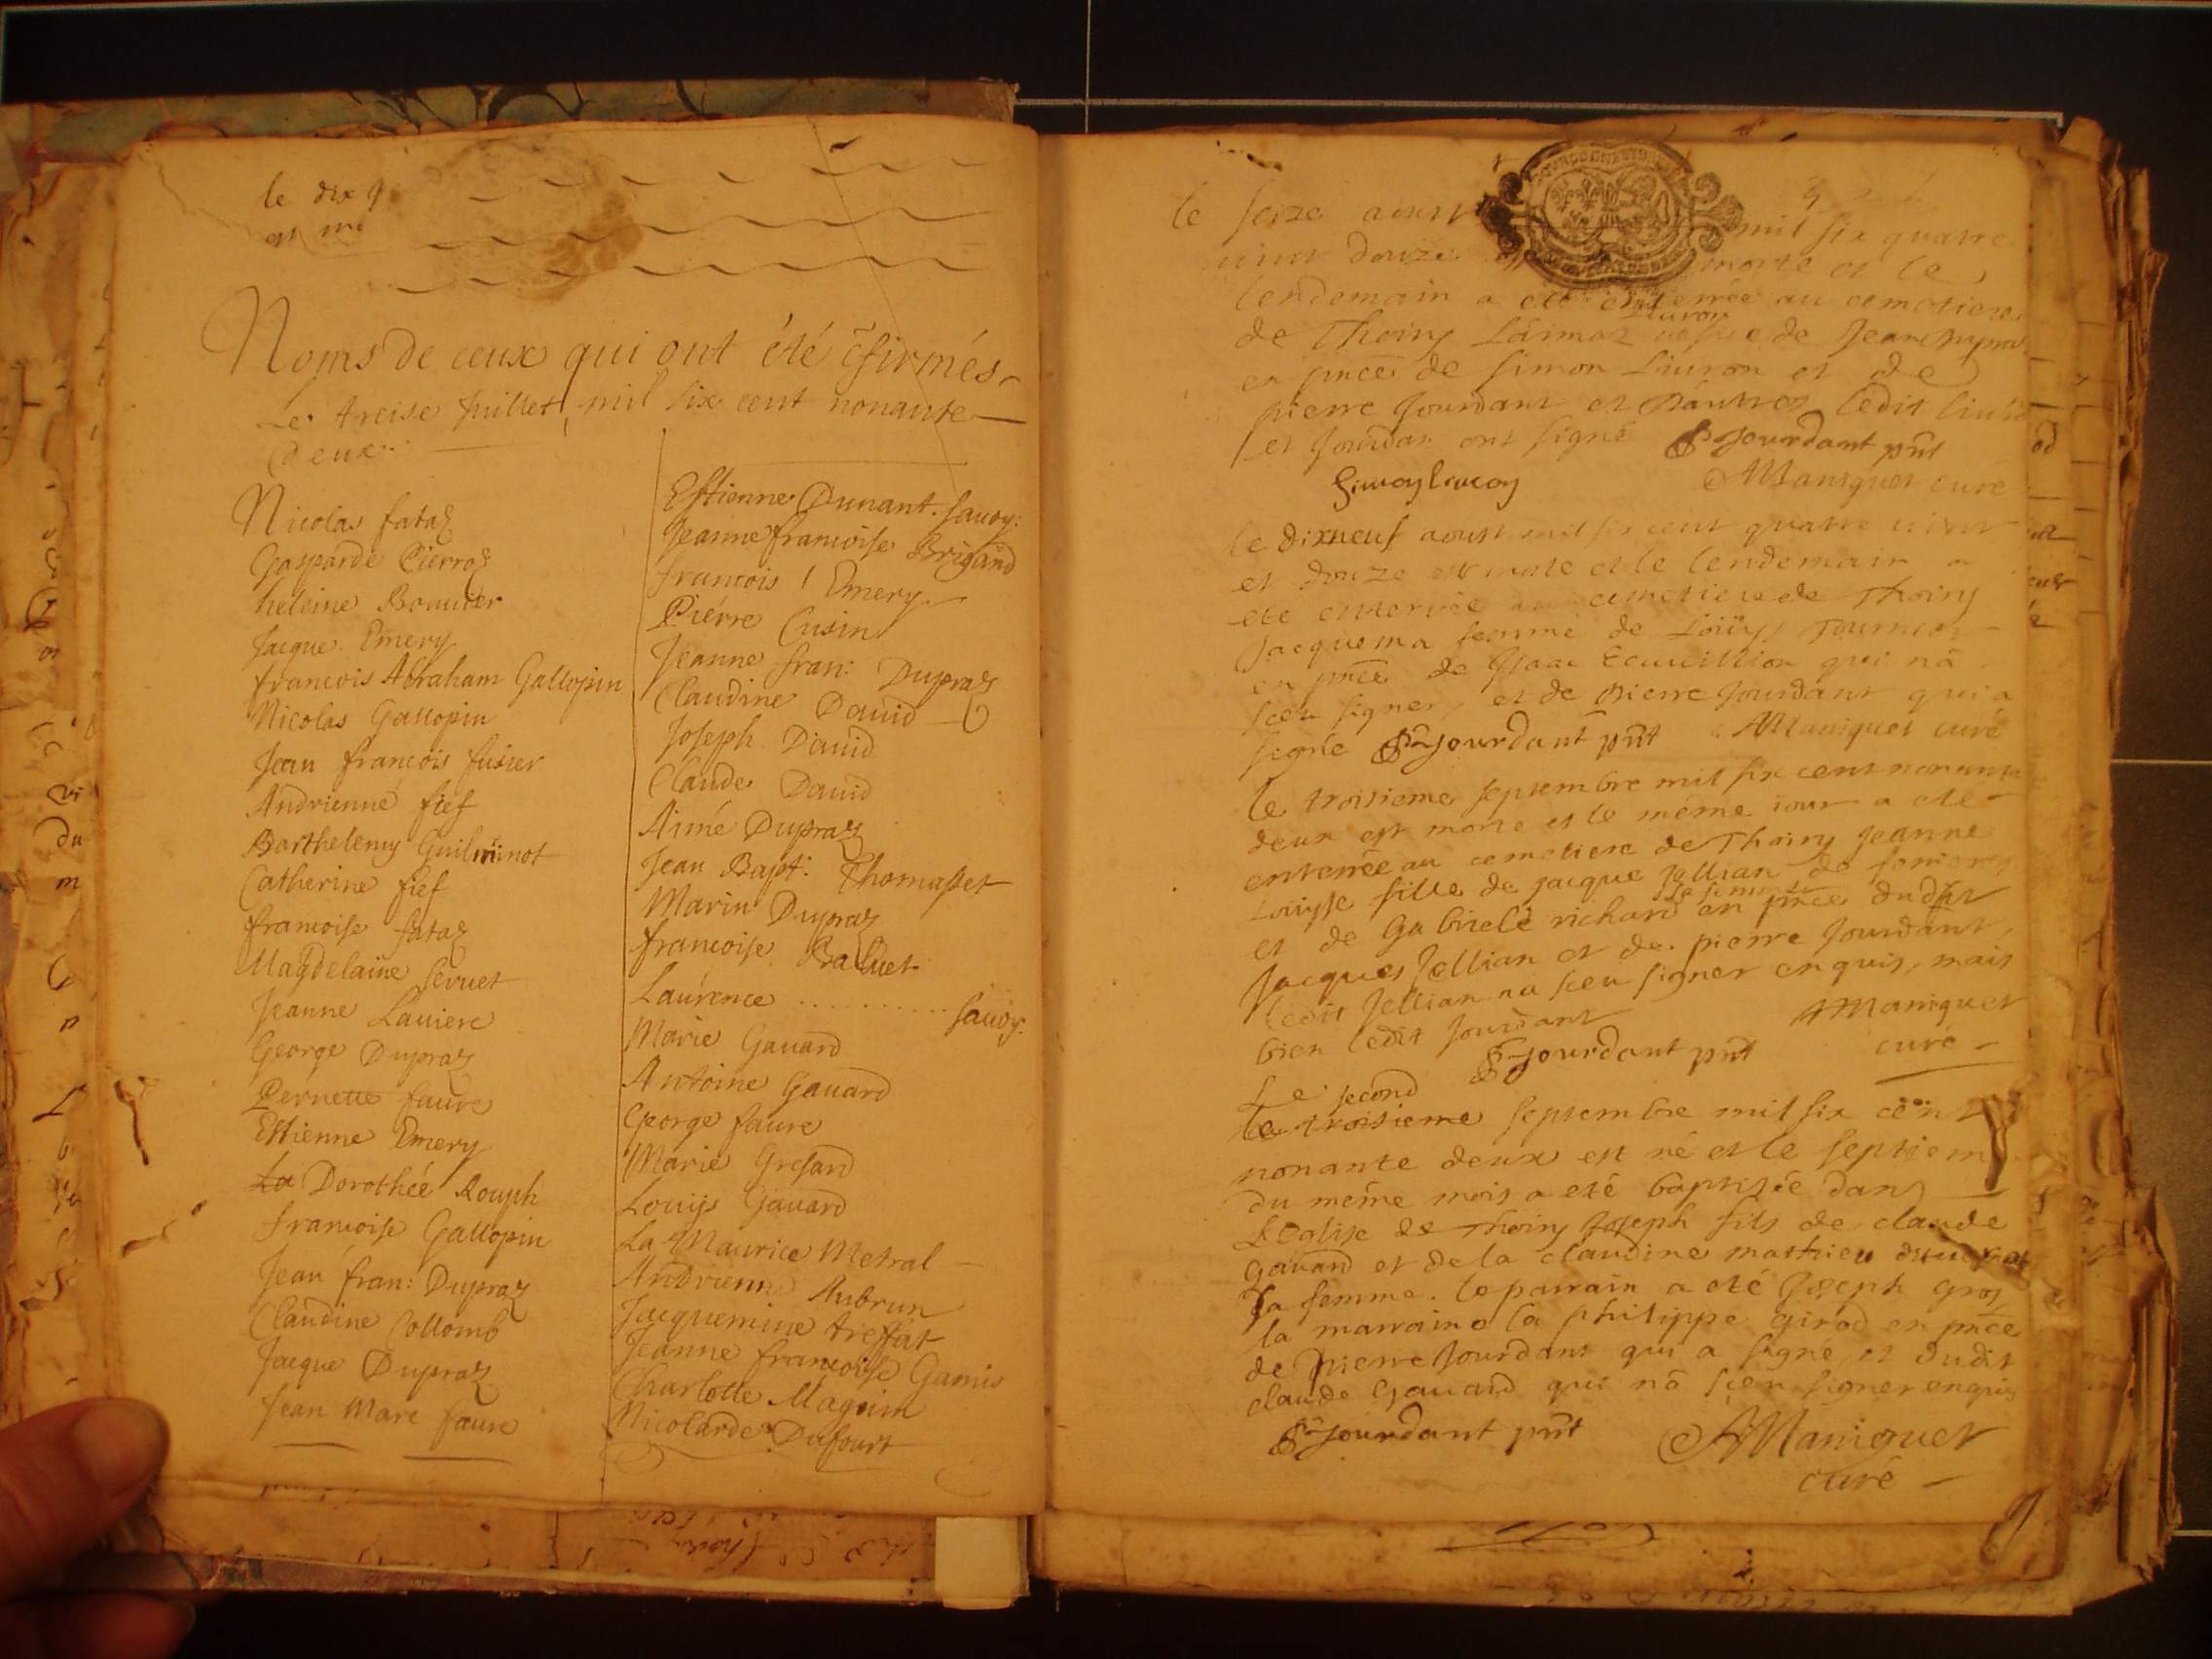 le dix
Noms de ceux qui ont été c̃firmés
Le treise Juillet, mil six cent nonante
deux.
Nicolas fataz
Gasparde Pierroz
heleine Bouuier
Jacque Emery
francois Abraham Gallopin
Nicolas Gallopin
Jean francois fusier
Andrienne fief
Barthelemy Guilminot
Catherine fief
francoise fataz
Magdelaine seruet
Jeanne Lauiere
George Dupraz
Pernette faure
Estienne Emery
La Dorothée Rouph
francoise Gallopin
Jean fran: Dupraz
Claudine Collomb
Jacque Dupraz
Jean Marc faure
Estienne Dunant. sauoy:
Jeanne francoise Brigand
francois Emery
Piérre Cusin
Jeanne fran: Dupraz
Claudine Dauid
Joseph Dauid
Claude Dauid
Aimé Dupraz
Jean Bapt: Thomasset
Marin Dupraz
francoise Raluet
Laurence .......... sauoy:
Marie Gauard
Antoine Gauard
George faure
Marie Gresard
Louijs Gauard
La Maurice Metral
Andrienne Aubrun
Jacquemine treffat
Jeanne francoise Gamis
Charlotte Magnin
Nicolarde Dufourt
le seize aoust mil six quatre
uint douze morte et le
lendemain a eté enterrée au cemetiere
de Thoiry de Jean
en p̃nce de simon Liuron et de
pierre Jourdant et d'autres ledit
et Jourdan ont signé P Jourdant p̃nt
Simon Liuron AManiquet curé
le dixneuf aoust mil six cent quatre uint
et douze est morte et le lendemain a
eté enterrée au cemetiere de Thoiry
Jacquema femme de Loüys Tournier
en p̃nce de Isaac qui nà
sceu signer, et de pierre Jourdant qui a
signé P Jourdant p̃nt AManiquet curé
le troisieme septembre mil six cent nonante
deux est morte et le méme iour a eté
enterrée au cemetiere de Thoiry Jeanne
Loüyse fille de jacque Jellian de
et de Gabriele richard sa femme en p̃nce dudit
Jacques Jellian et de pierre Jourdant,
ledit Jellian na sceu signer enquis, mais
bien ledit Jourdant AManiquet
P Jourdant p̃nt curé
Le second
le troisieme septembre mil six cent
nonante deux est né et le septieme
du méme mois a eté baptisée dans
L'Eglise de Thoiry Joseph fils de claude
Gauard et de la claudine mathieu
sa femme. le parrain a eté Joseph gros
la marraine la philippe girod en p̃nce
de pierre Jourdant qui a signé et dudit
claude Gauard qui nà sceu signer enquis
P Jourdant p̃nt AManiquet
curé